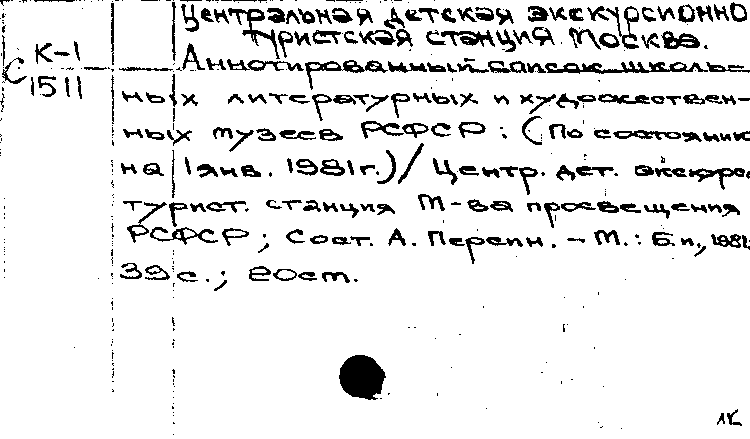 Центральная детская экскурсионно
туристская станция. Москва.
К-1
С 1511
Аннотированный список школь=
ных литературных и художествен-
ных музеев РСФСР: (По состоянию
на 1 янв. 1981 г.) / Центр. дет. экскурс.
турист. станция М-ва просвещения
РСФСР; Сост. А. Персин. – М.: Б.и., 1981.
39 с.; 20 см.